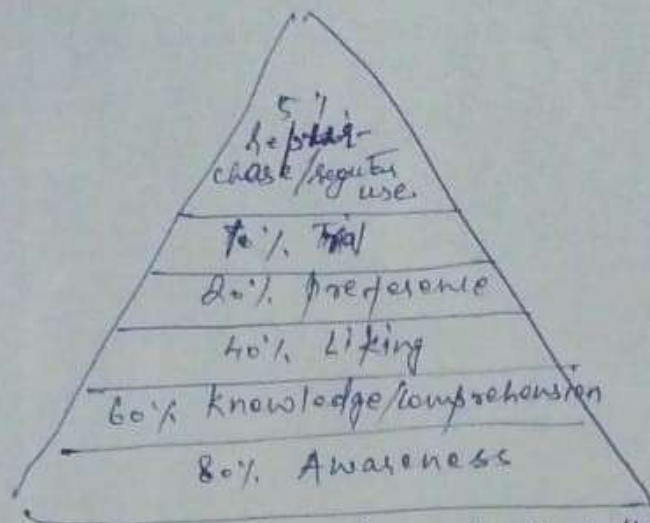 5%
Repur-
chase/regular
use.
10% Trial
20% preference
40% Liking
60% knowledge/comprehension
80% Awareness